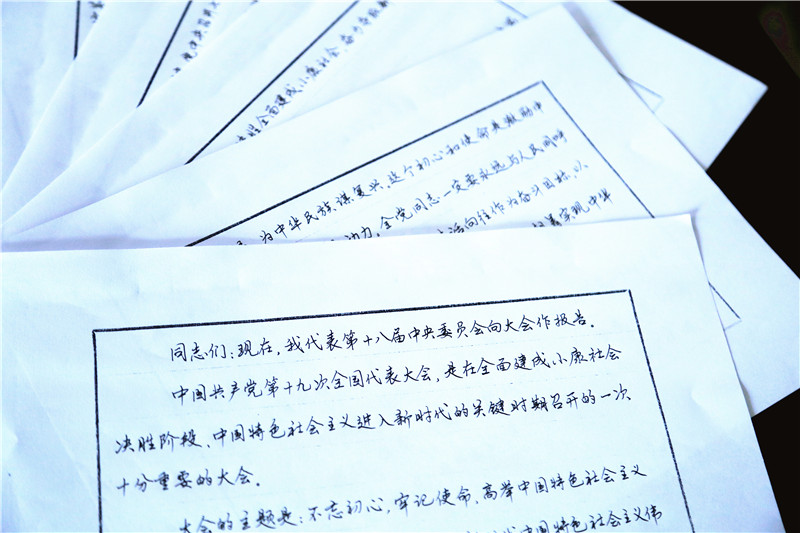 胜全面建成小康社会,奋力夺取新
为中华民族谋复兴。这个初心和使命是激励中
动力。全党同志一定要永远与人民同呼
活向往作为奋斗目标,以
着实现中华
同志们:现在,我代表第十八届中央委员会向大会作报告。
中国共产党第十九次全国代表大会,是在全面建成小康社会
决胜阶段、中国特色社会主义进入新时代的关键时期召开的一次
十分重要的大会。
大会的主题是:不忘初心,牢记使命,高举中国特色社会主义
中国特色社会主义伟